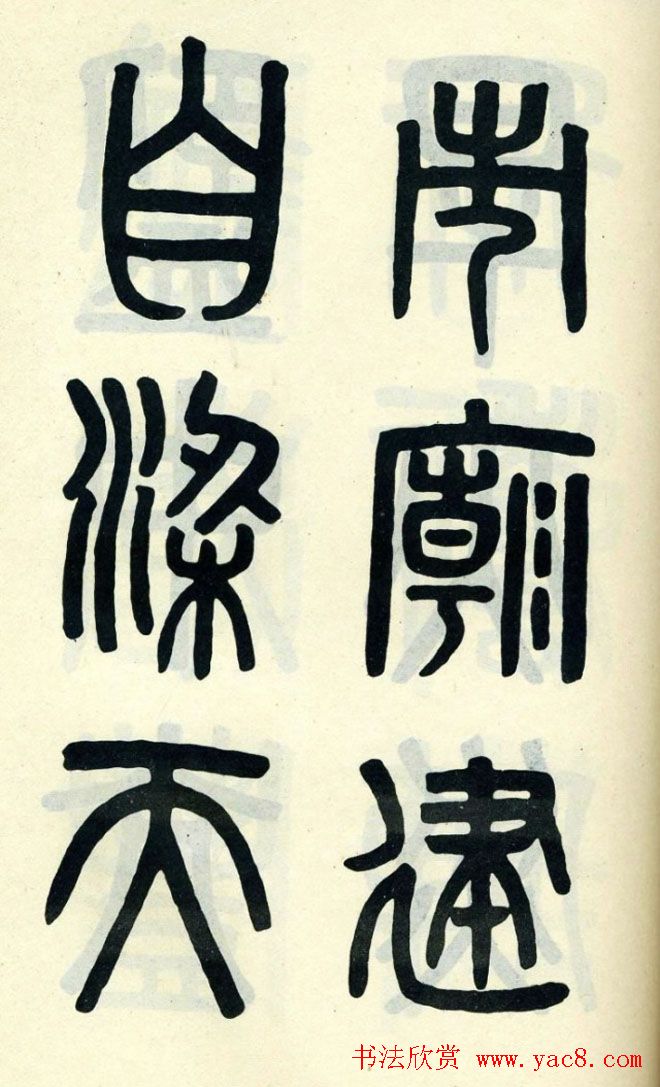 市廟建
自梁天
书法欣赏 www.yac8.com